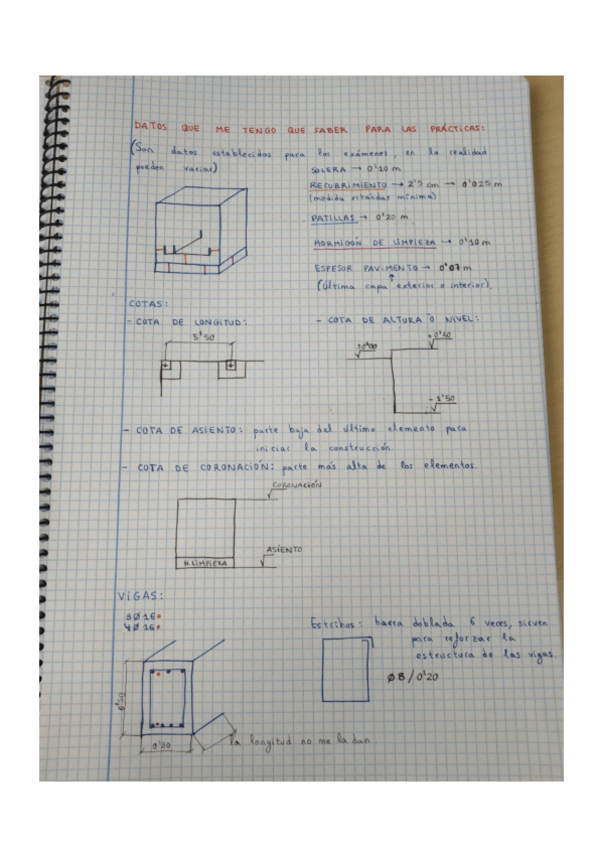 DATOS QUE ME TENGO QUE SABER PARA LAS PRÁCTICAS:
(Son datos establecidos para los exámenes, en la realidad
pueden variar)
SOLERA → 0'10 m
RECUBRIMIENTO → 2'5 cm → 0'025 m
(medida estándar mínima)
PATILLAS → 0'20 m
HORMIGÓN DE LIMPIEZA → 0'10 m
ESPESOR PAVIMENTO → 0'07 m
(Última capa exterior o interior).
COTAS:
- COTA DE LONGITUD:
5'50
- COTA DE ALTURA O NIVEL:
+0'40
±0'00
- 1'50
- COTA DE ASIENTO: parte baja del último elemento para
iniciar la construcción.
- COTA DE CORONACIÓN: parte más alta de los elementos.
CORONACIÓN
ASIENTO
H. LIMPIEZA
VIGAS:
3Ø16
4Ø16
Estribos: barra doblada 6 veces, sirven
para reforzar la
estructura de las vigas.
Ø8/0'20
0'30
la longitud no me la dan.